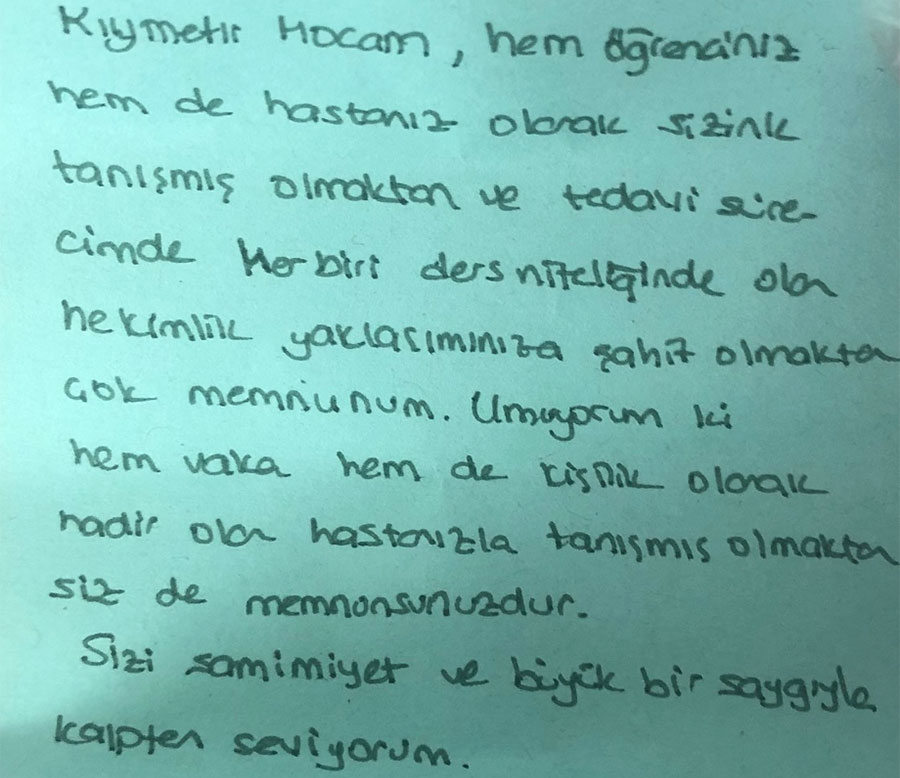 Kıymetli Hocam, hem öğrenciniz
hem de hastanız olarak sizinle
tanışmış olmaktan ve tedavi süre-
cimde Her biri ders niteliğinde olan
hekimlik yaklaşımınıza şahit olmaktan
çok memnunum. Umuyorum ki
hem vaka hem de kişilik olarak
nadir olan hastanızla tanışmış olmaktan
siz de memnunsunuzdur.
Sizi samimiyet ve büyük bir saygıyla
kalpten seviyorum.